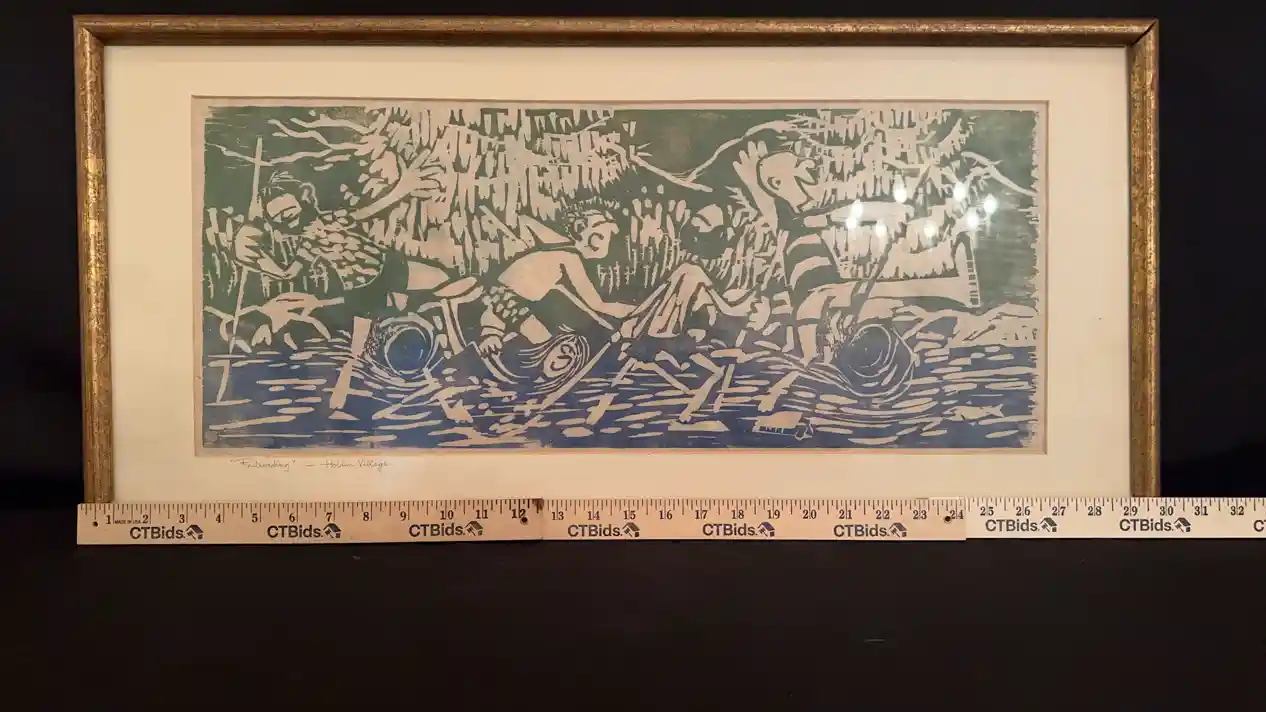 — Holden Village
1 MADE IN USA 2 3 4 5 6 7 8 9 10 11 12 13 14 15 16 17 18 19 20 21 22 23 24 25 26 27 28 29 30 31 32
CTBids. CTBids. CTBids. CTBids. CTBids. CTBids. CTBids. CTBids.